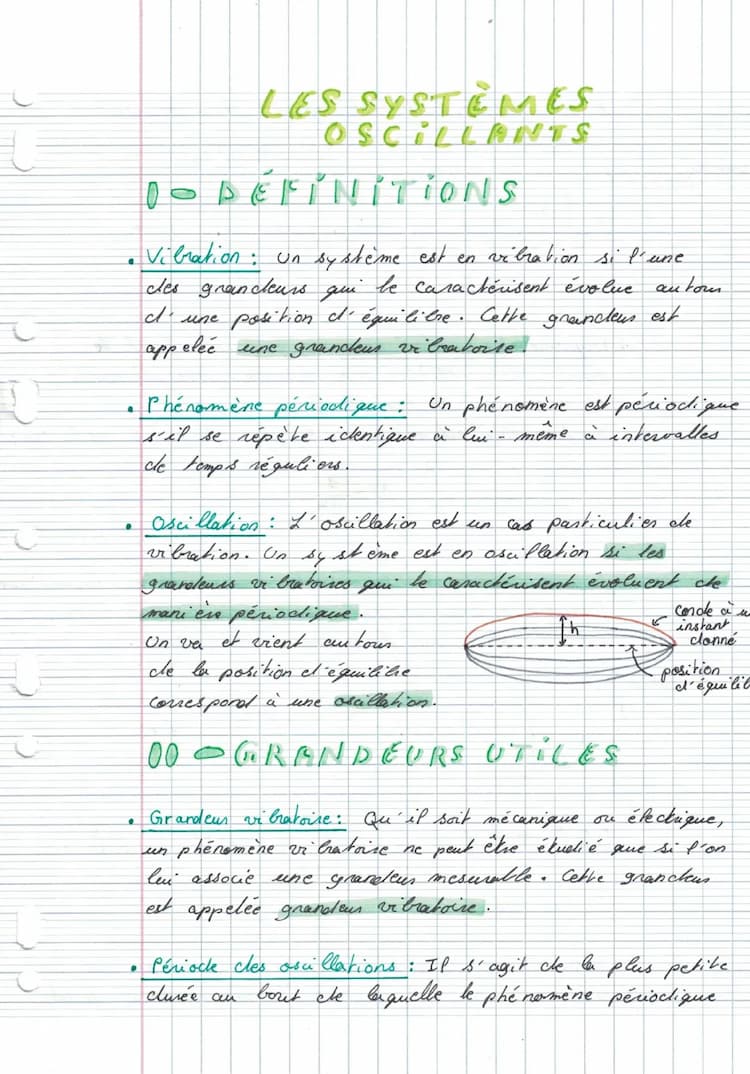 LES SYSTÈMES
OSCILLANTS
I - DÉFINITIONS
• Vibration : Un système est en vibration si l'une
des grandeurs qui le caractérisent évolue autour
d'une position d'équilibre. Cette grandeur est
appelée une grandeur vibratoire.
• Phénomène périodique : Un phénomène est périodique
s'il se répète identique à lui-même à intervalles
de temps réguliers.
• Oscillation : L'oscillation est un cas particulier de
vibration. Un système est en oscillation si les
grandeurs vibratoires qui le caractérisent évoluent de
manière périodique.
Un va et vient autour
de la position d'équilibre
correspond à une oscillation.
h
corde à
instant
donné
position
II - GRANDEURS UTILES
• Grandeur vibratoire : Qu'il soit mécanique ou électrique,
un phénomène vibratoire ne peut être étudié que si l'on
lui associe une grandeur mesurable. Cette grandeur
est appelée grandeur vibratoire.
• Période des oscillations : Il s'agit de la plus petite
durée au bout de laquelle le phénomène périodique